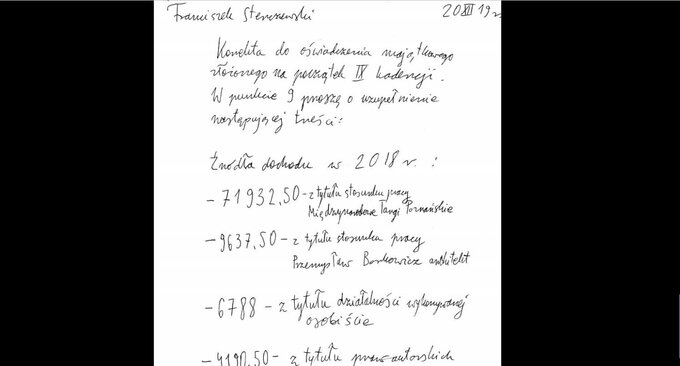 Franciszek Sterczewski 20 XII 19 r.
Korekta do oświadczenia majątkowego
złożonego na początek IX kadencji.
W punkcie 9 proszę o uzupełnienie
następującej treści:
Źródła dochodu w 2018 r. :
- 71932,50 - z tytułu stosunku pracy
Międzynarodowe Targi Poznańskie
- 9637,50 - z tytułu stosunku pracy
Przemysław Borkowicz architekt
- 6788 - z tytułu działalności wykonywanej
osobiście
- 4190,50 - z tytułu praw autorskich